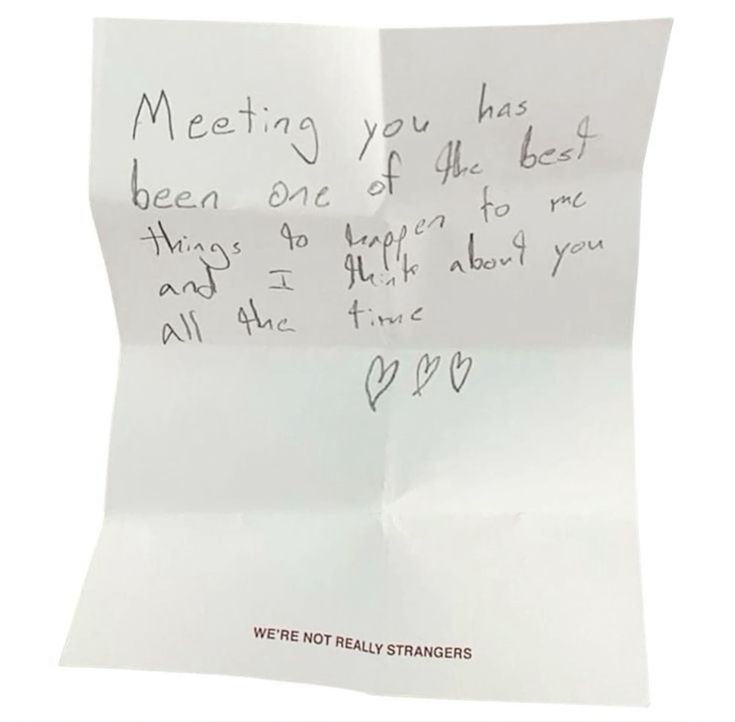 Meeting you has
been one of the best
things to happen to me
and I think about you
all the time
♡♡♡
WE'RE NOT REALLY STRANGERS